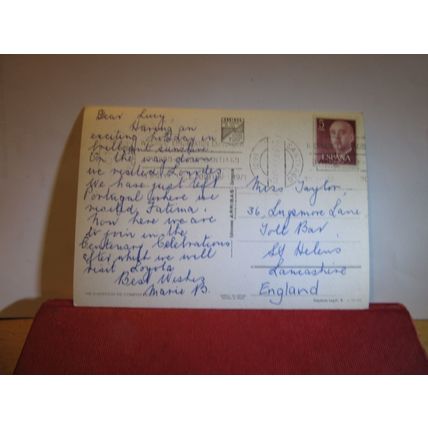 Dear Lucy,
Having an
exciting holiday in
brilliant sunshine
On the way down
we visited Lourdes
We have just left
Portugal where we
visited Fatima.
Now here we are
to join in the
Centenary Celebrations
after which we will
visit Loyola
Best Wishes
Marie B.
ESPAÑA
Ediciones ARRIBAS
Miss Taylor,
36, Lugsmore Lane,
Toll Bar,
St Helens
Lancashire
England